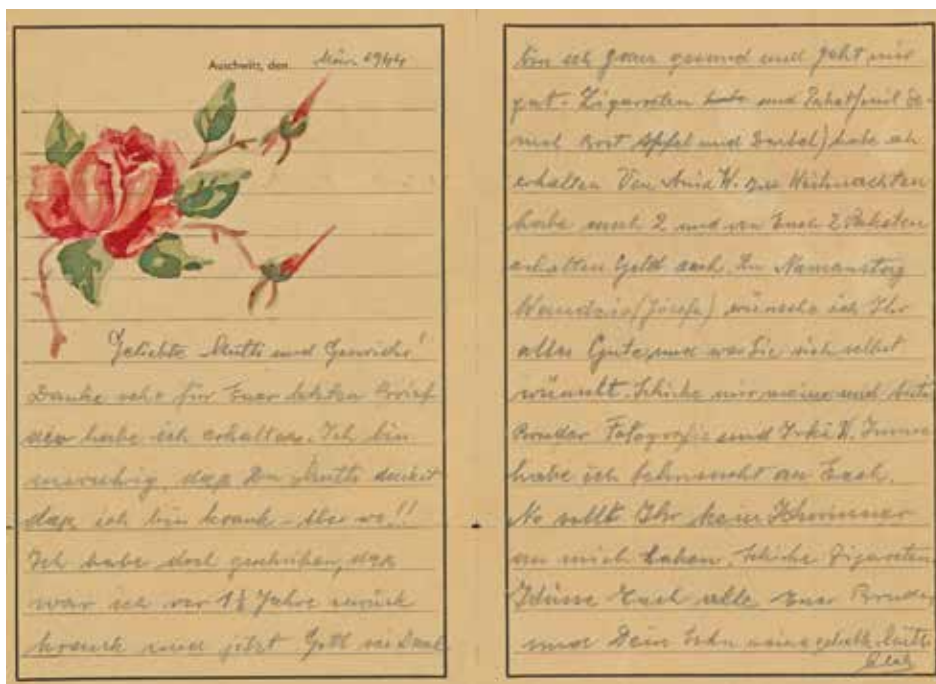 Auschwitz, den März 1944
Geliebte Mutti und Geswister!
Danke sehr für Euer letzten Brief
den habe ich erhalten. Ich bin
unruhig, dap Du Mutti denkst
dap ich bin krank - Aber wo!!
Ich habe doch geschriben, dap
war ich vor 1½ Jahre zurück
krank und jetzt Gott sei Dank
bin ich ganz gesund und geht mir
gut. Zigareten und Paket (mit
Brot Apfel und Zwibel) habe ich
erhalten Von W. zu Weihnachten
habe auch 2 und von Euch 2 Paketen
erhalten Geld auch. Zu Namenstag
(Josefa) wünsche ich Ihr
alles Gute und was Sie sich selbst
wünscht. Schicke mir meine und
Bruder Fotografie und Irki K. Immer
habe ich Sehnsucht an Euch.
No sollt Ihr kein
an mich haben. Schicke Zigareten
Küsse Euch alle Euer Bruder
und Dein Sohn meine geliebte Mutti